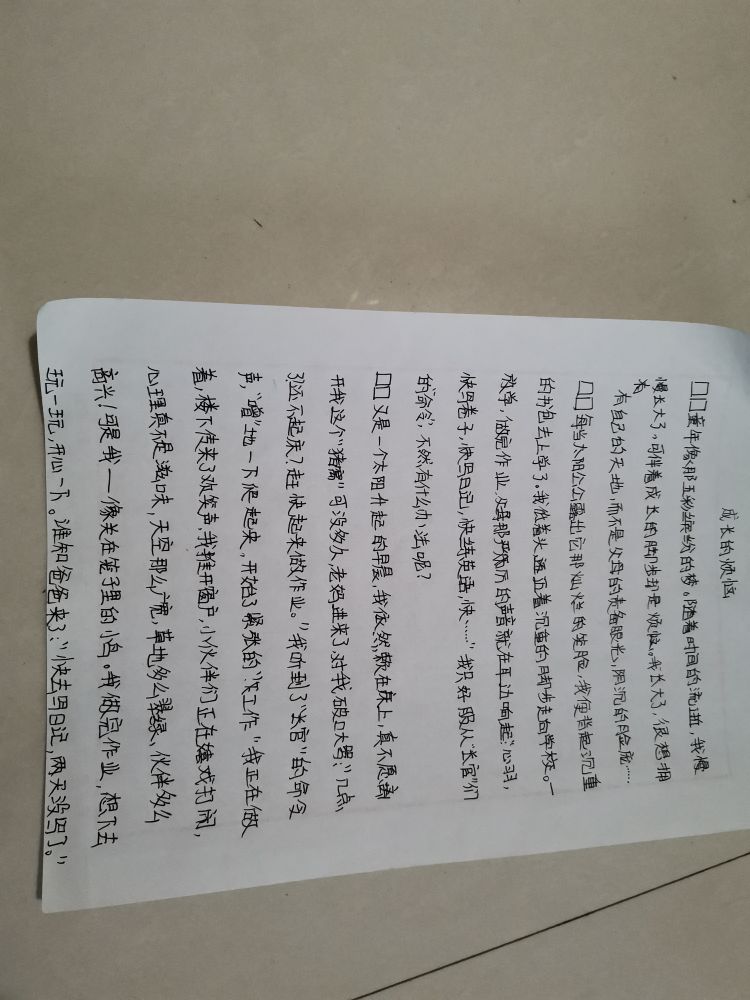 成长的烦恼
□□童年像那五彩缤纷的梦。随着时间的流逝，我慢
慢长大了，可伴着成长的脚步却是烦恼，我长大了，很想拥
有自己的天地，而不是父母的责备眼光、阴沉的脸庞……
□□每当太阳公公露出它那灿烂的笑脸，我便背起沉重
的书包去上学了。我低着头迈着沉重的脚步走向学校。一
放学，做完作业，父母那严厉的声音就在耳边响起：“心羽，
快写卷子，快写日记，快练英语，快……”我只好服从“长官”们
的“命令”，不然有什么办法呢？
□□又是一个太阳升起的早晨，我依然躺在床上，真不愿离
开我这个“猪窝”可没多久，老妈进来了，对我破口大骂：“几点
了还不起床？赶快起来做作业。”我听到了“长官”的命令
声，“噌”地一下爬起来，开始了紧张的“工作”我正在做
着，楼下传来了欢笑声，我推开窗户，小伙伴们正在嬉戏打闹，
心理真不是滋味，天空那么广宽，草地多么翠绿、伙伴多么
高兴！可是我——像关在笼子里的小鸟。我做完作业，想下去
玩一玩，开心一下。谁知爸爸来了：“快去写日记，两天没写了。”